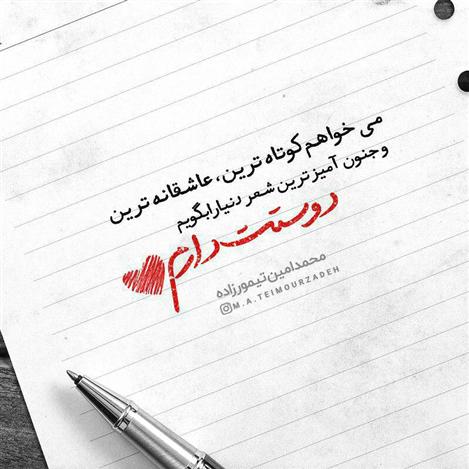 می خواهم کوتاه ترین، عاشقانه ترین
و جنون آمیز ترین شعر دنیا رابگویم
دوستت دارم
محمدامین تیمورزاده
M.A.TEIMOURZADEH